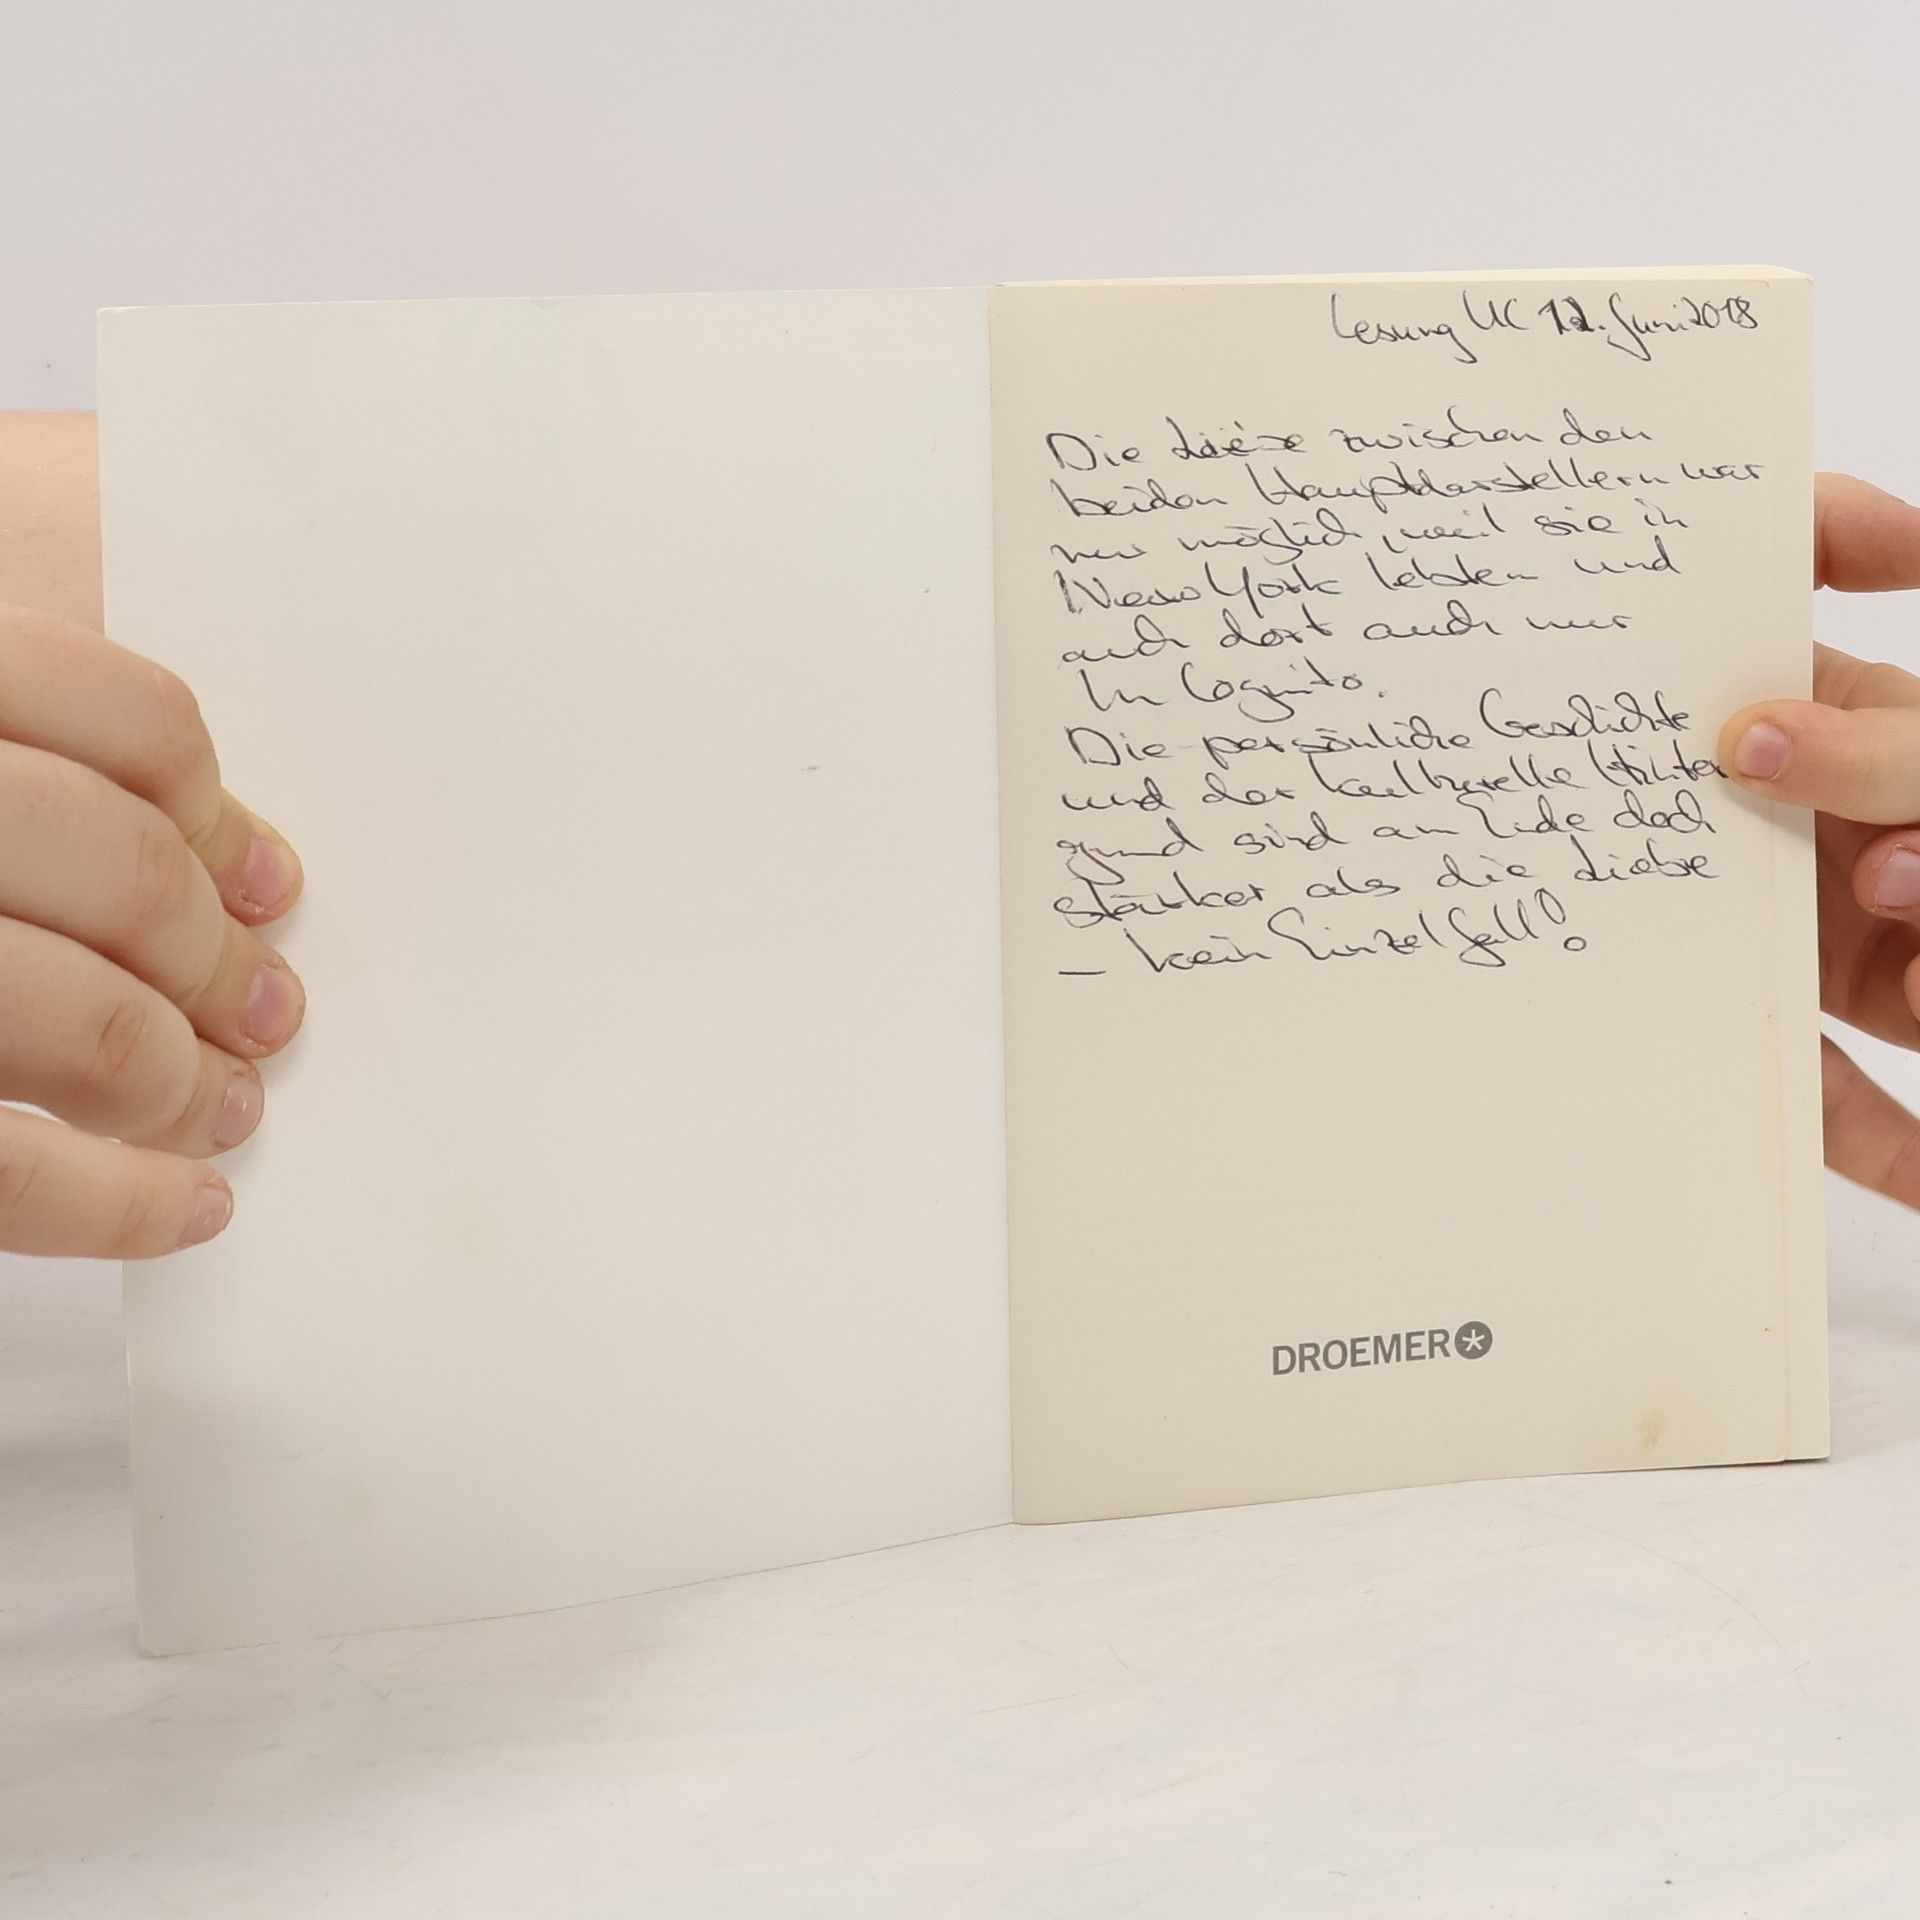 Lesung UC 12. Juni 2018
Die Liebe zwischen den
beiden Hauptdarstellern war
nur möglich, weil sie in
New York lebten und
auch dort auch nur
In Cognito.
Die persönliche Geschichte
und der kulturelle Hinter
grund sind am Ende doch
stärker als die Liebe
– kein Einzelfall!
DROEMER